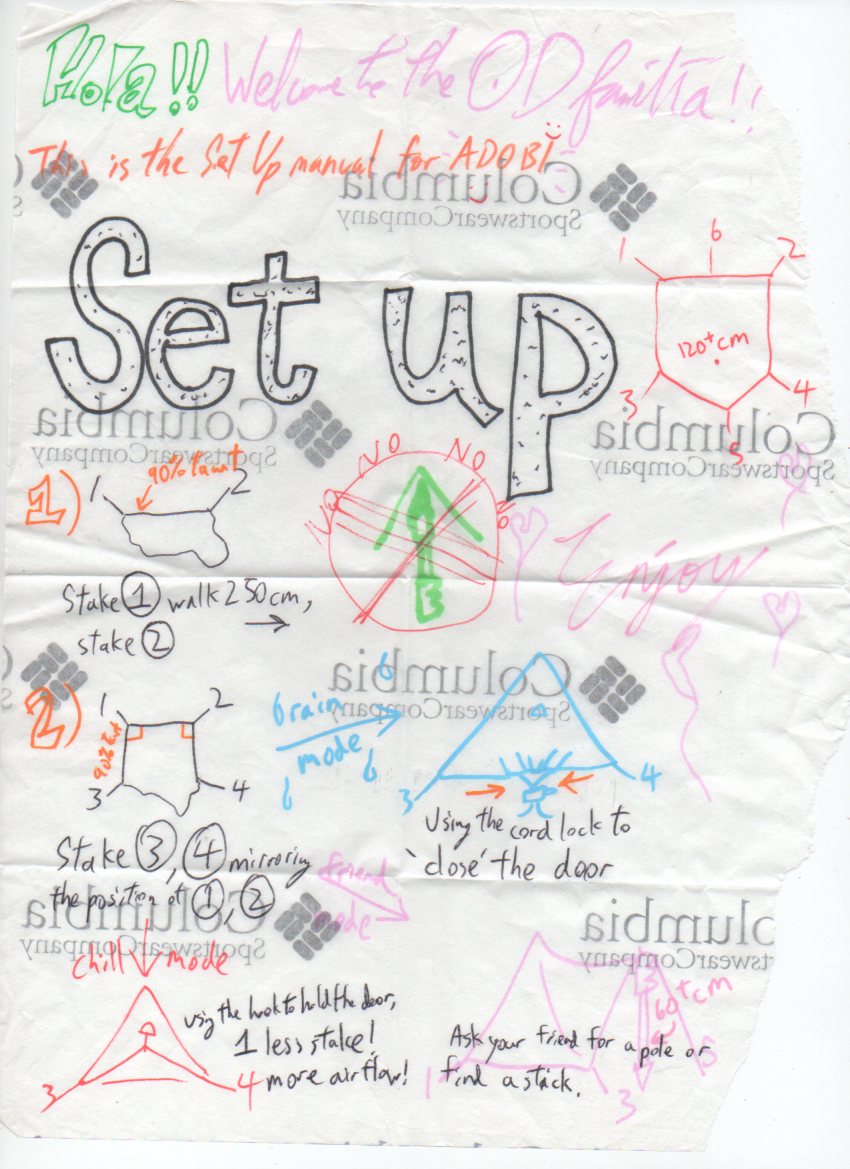 Hola!! Welcome to the OD familia!!
This is the Set Up manual for ADOBI
Columbia
SportswearCompany
Set up
1 6 2
120+ cm
3 4
5
Columbia
SportswearCompany
Columbia
SportswearCompany
1)
1 2
90% taut
NO NO NO NO
Enjoy
Stake 1 walk 250cm,
stake 2
Columbia
SportswearCompany
2)
1 2
90% taut
3 4
rain
mode
3 4
Using the cord lock to
'close' the door
Stake 3, 4 mirroring
the position of 1, 2
friend
mode
Columbia
SportswearCompany
Columbia
SportswearCompany
chill mode
using the hook to hold the door,
1 less stake!
more airflow!
3 4
60+ cm
Ask your friend for a pole or
find a stick.
1 3 5